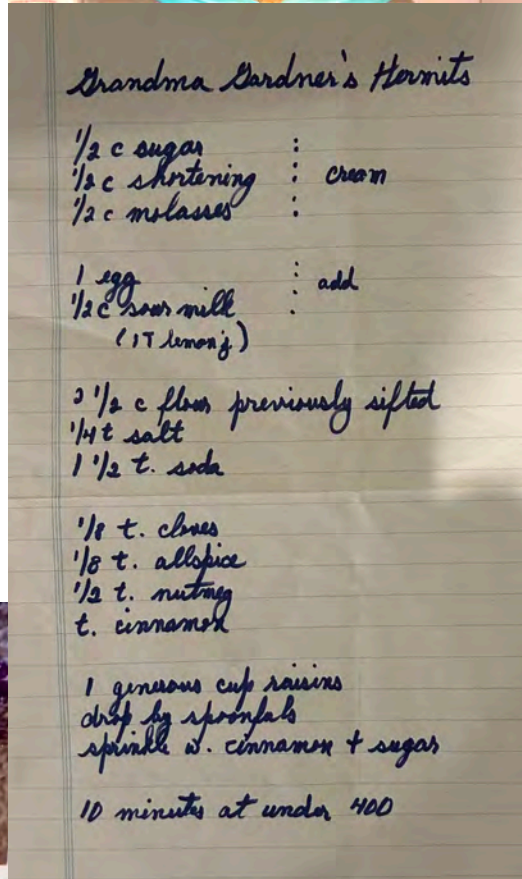 Grandma Gardner's Hermits
1/2 c sugar :
1/2 c shortening : cream
1/2 c molasses :
1 egg : add
1/2 c sour milk :
(1T lemon j)
2 1/2 c flour previously sifted
1/4 t salt
1 1/2 t. soda
1/8 t. cloves
1/8 t. allspice
1/2 t. nutmeg
t. cinnamon
1 generous cup raisins
drop by spoonfuls
sprinkle w. cinnamon + sugar
10 minutes at under 400